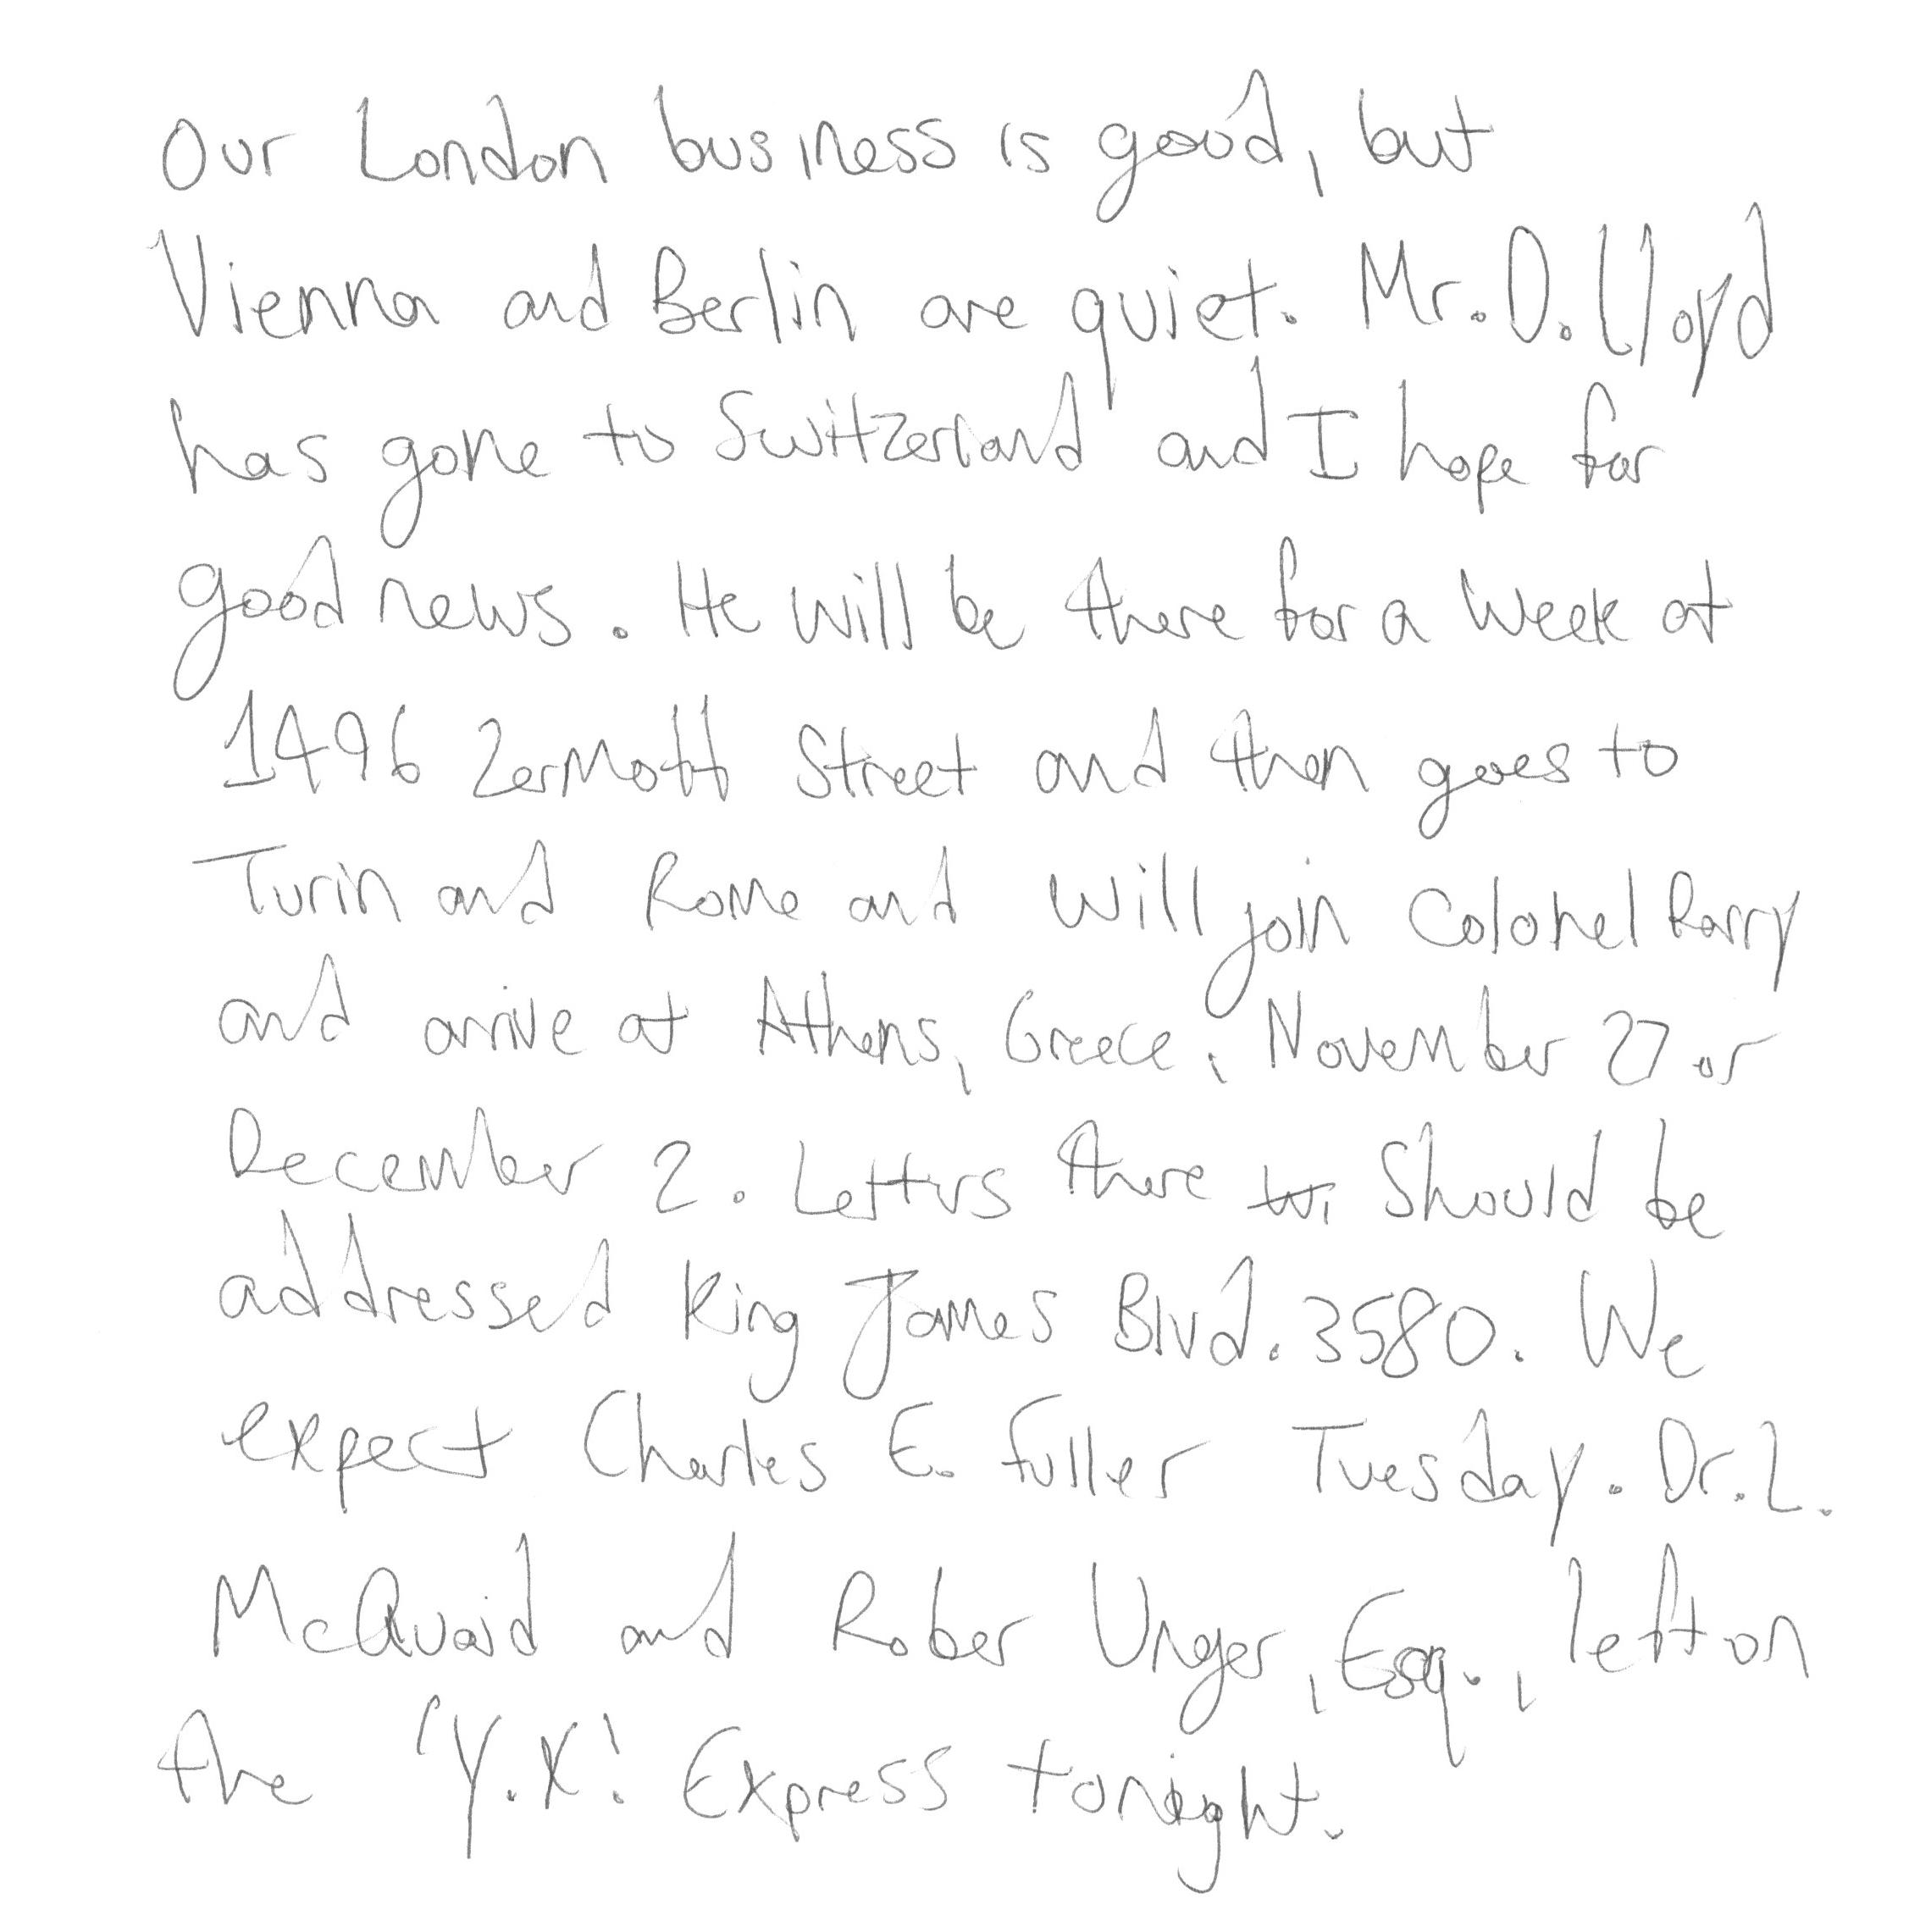 Our London business is good, but
Vienna and Berlin are quiet. Mr. D. Lloyd
has gone to Switzerland and I hope for
good news. He will be there for a week at
1496 Zermott Street and then goes to
Turin and Rome and will join Colonel Parry
and arrive at Athens, Greece, November 27 or
December 2. Letters there should be
addressed King James Blvd. 3580. We
expect Charles E. Fuller Tuesday. Dr. L.
McQuaid and Rober Unger, Esq., left on
the 'Y.X.' Express tonight.